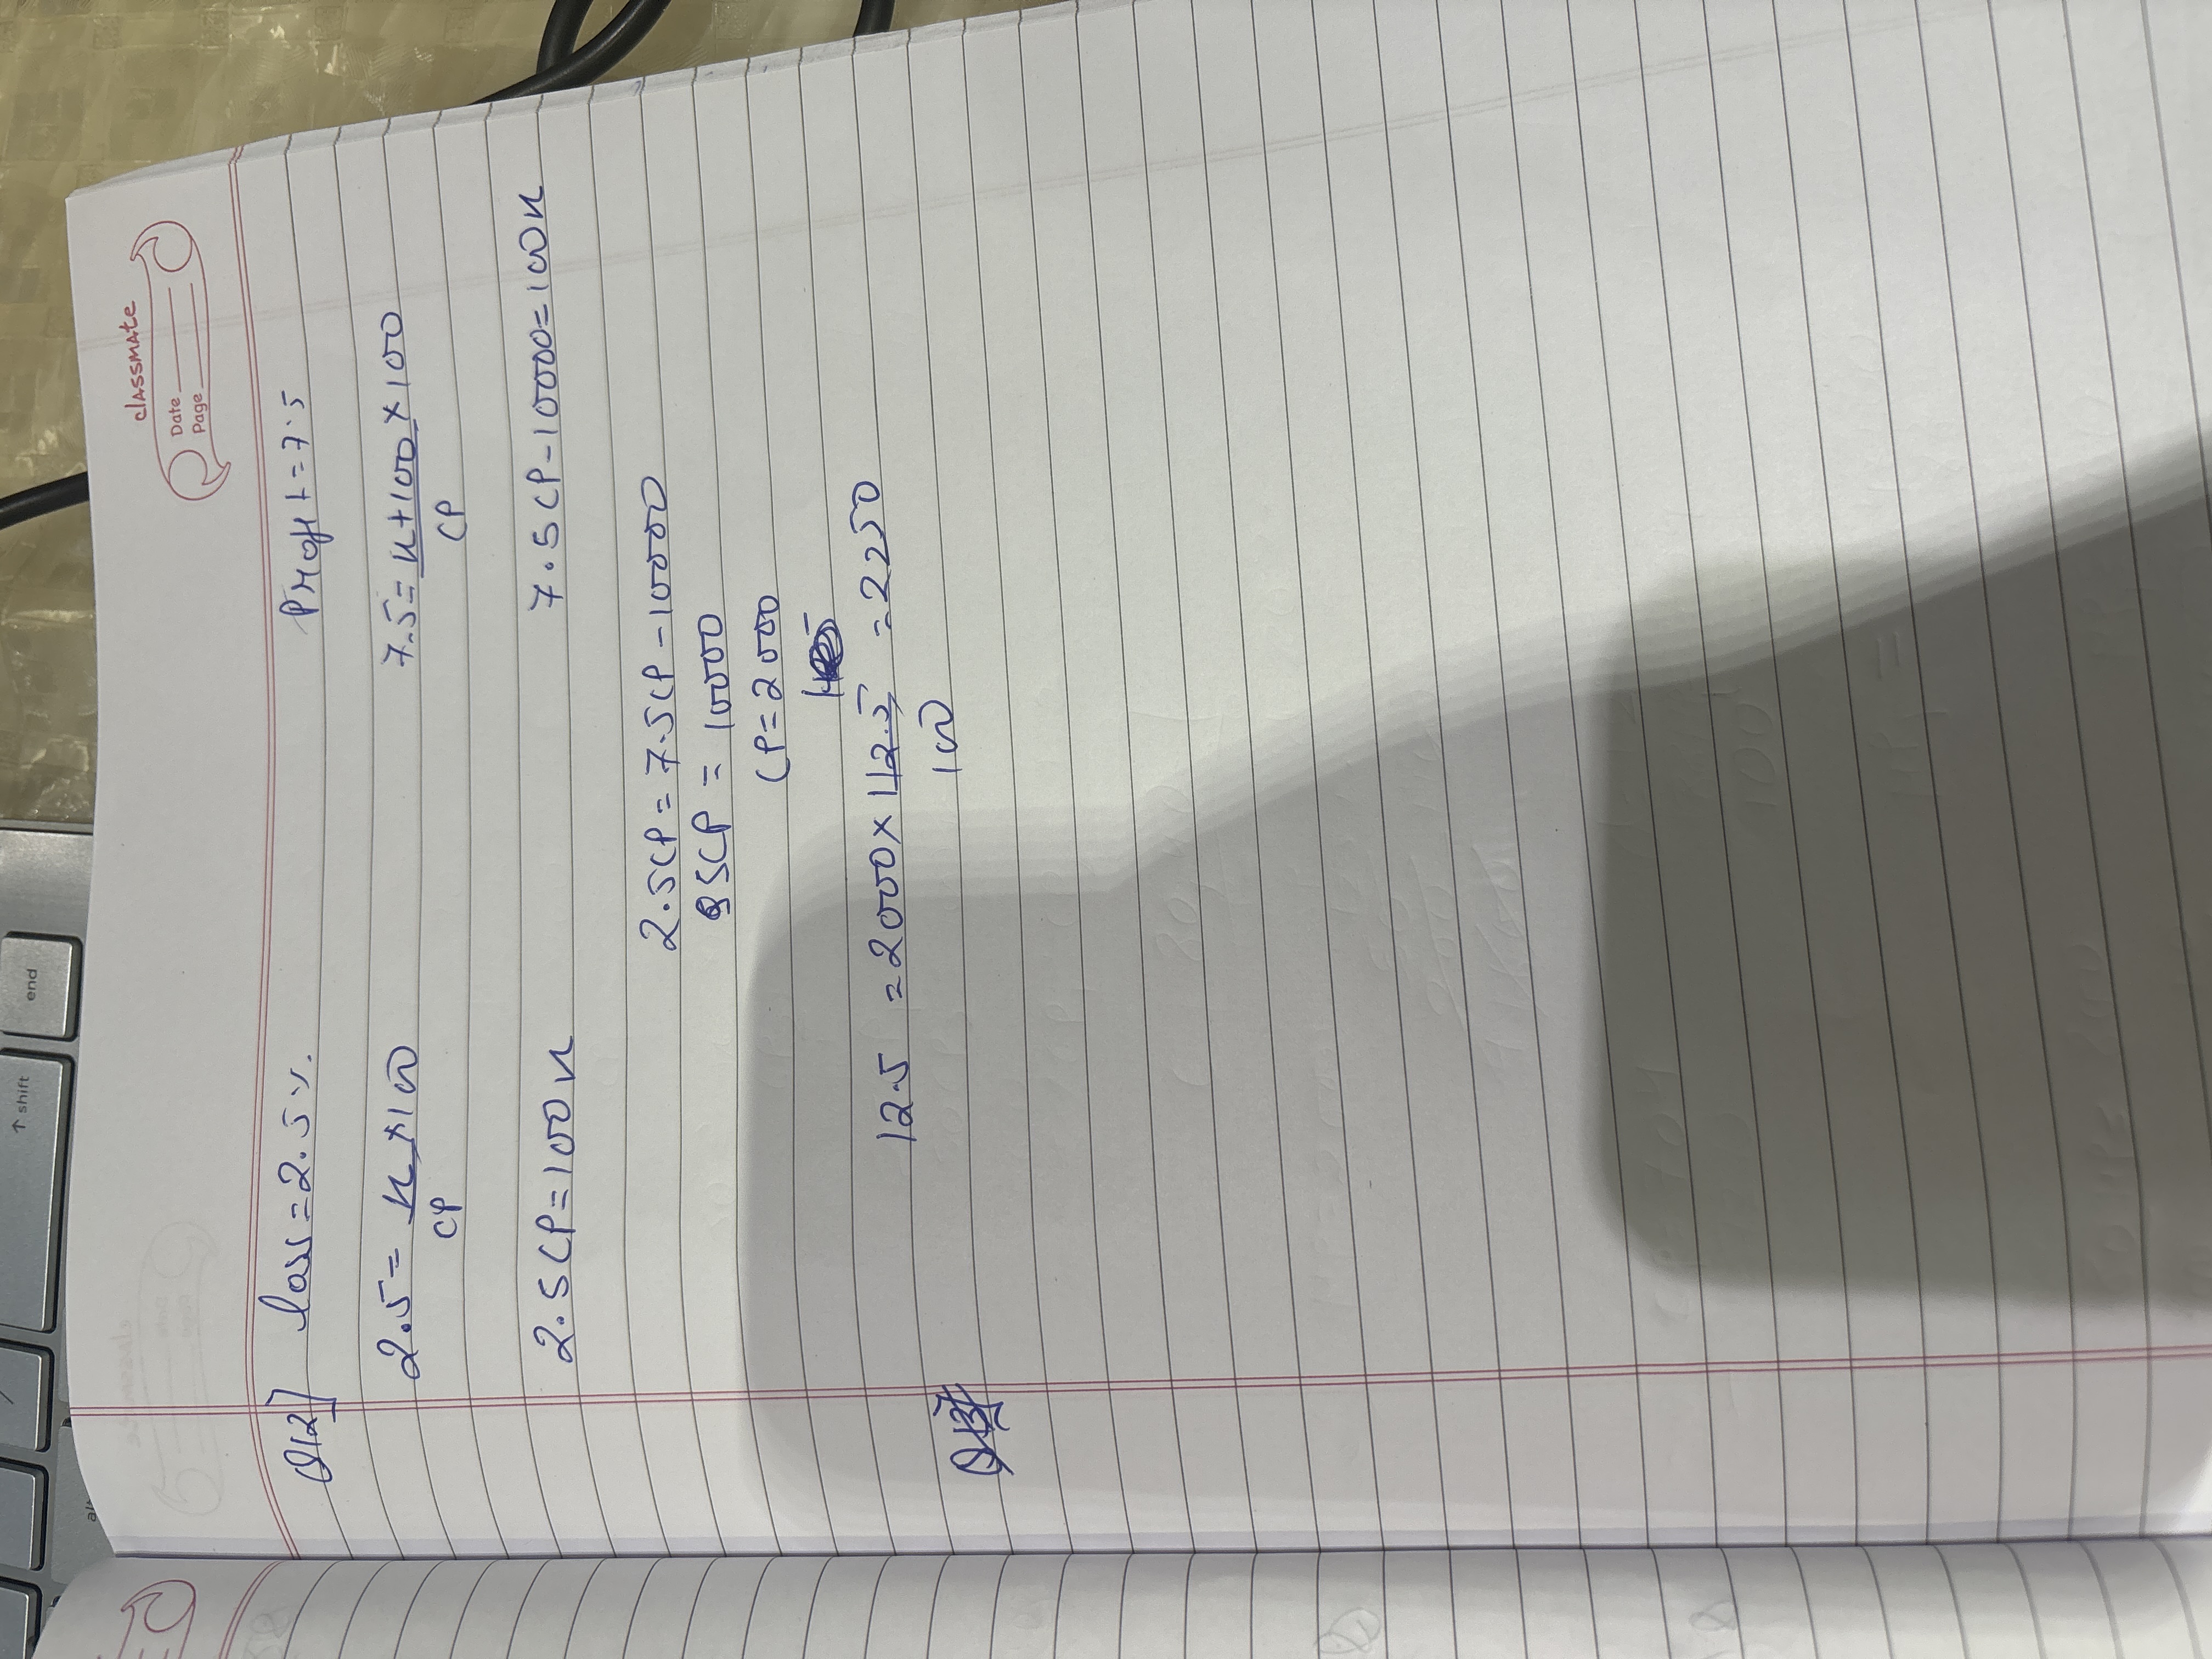 classmate
Date
Page
Q12] loss = 2.5%. Profit = 7.5
2.5 = x × 100 7.5 = x + 100 × 100
CP CP
2.5 CP = 100x 7.5 CP - 10000 = 100x
2.5CP = 7.5CP - 10000
5CP = 10000
CP = 2000
12.5 = 2000 × 112.5 = 2250
100
end
↑ shift